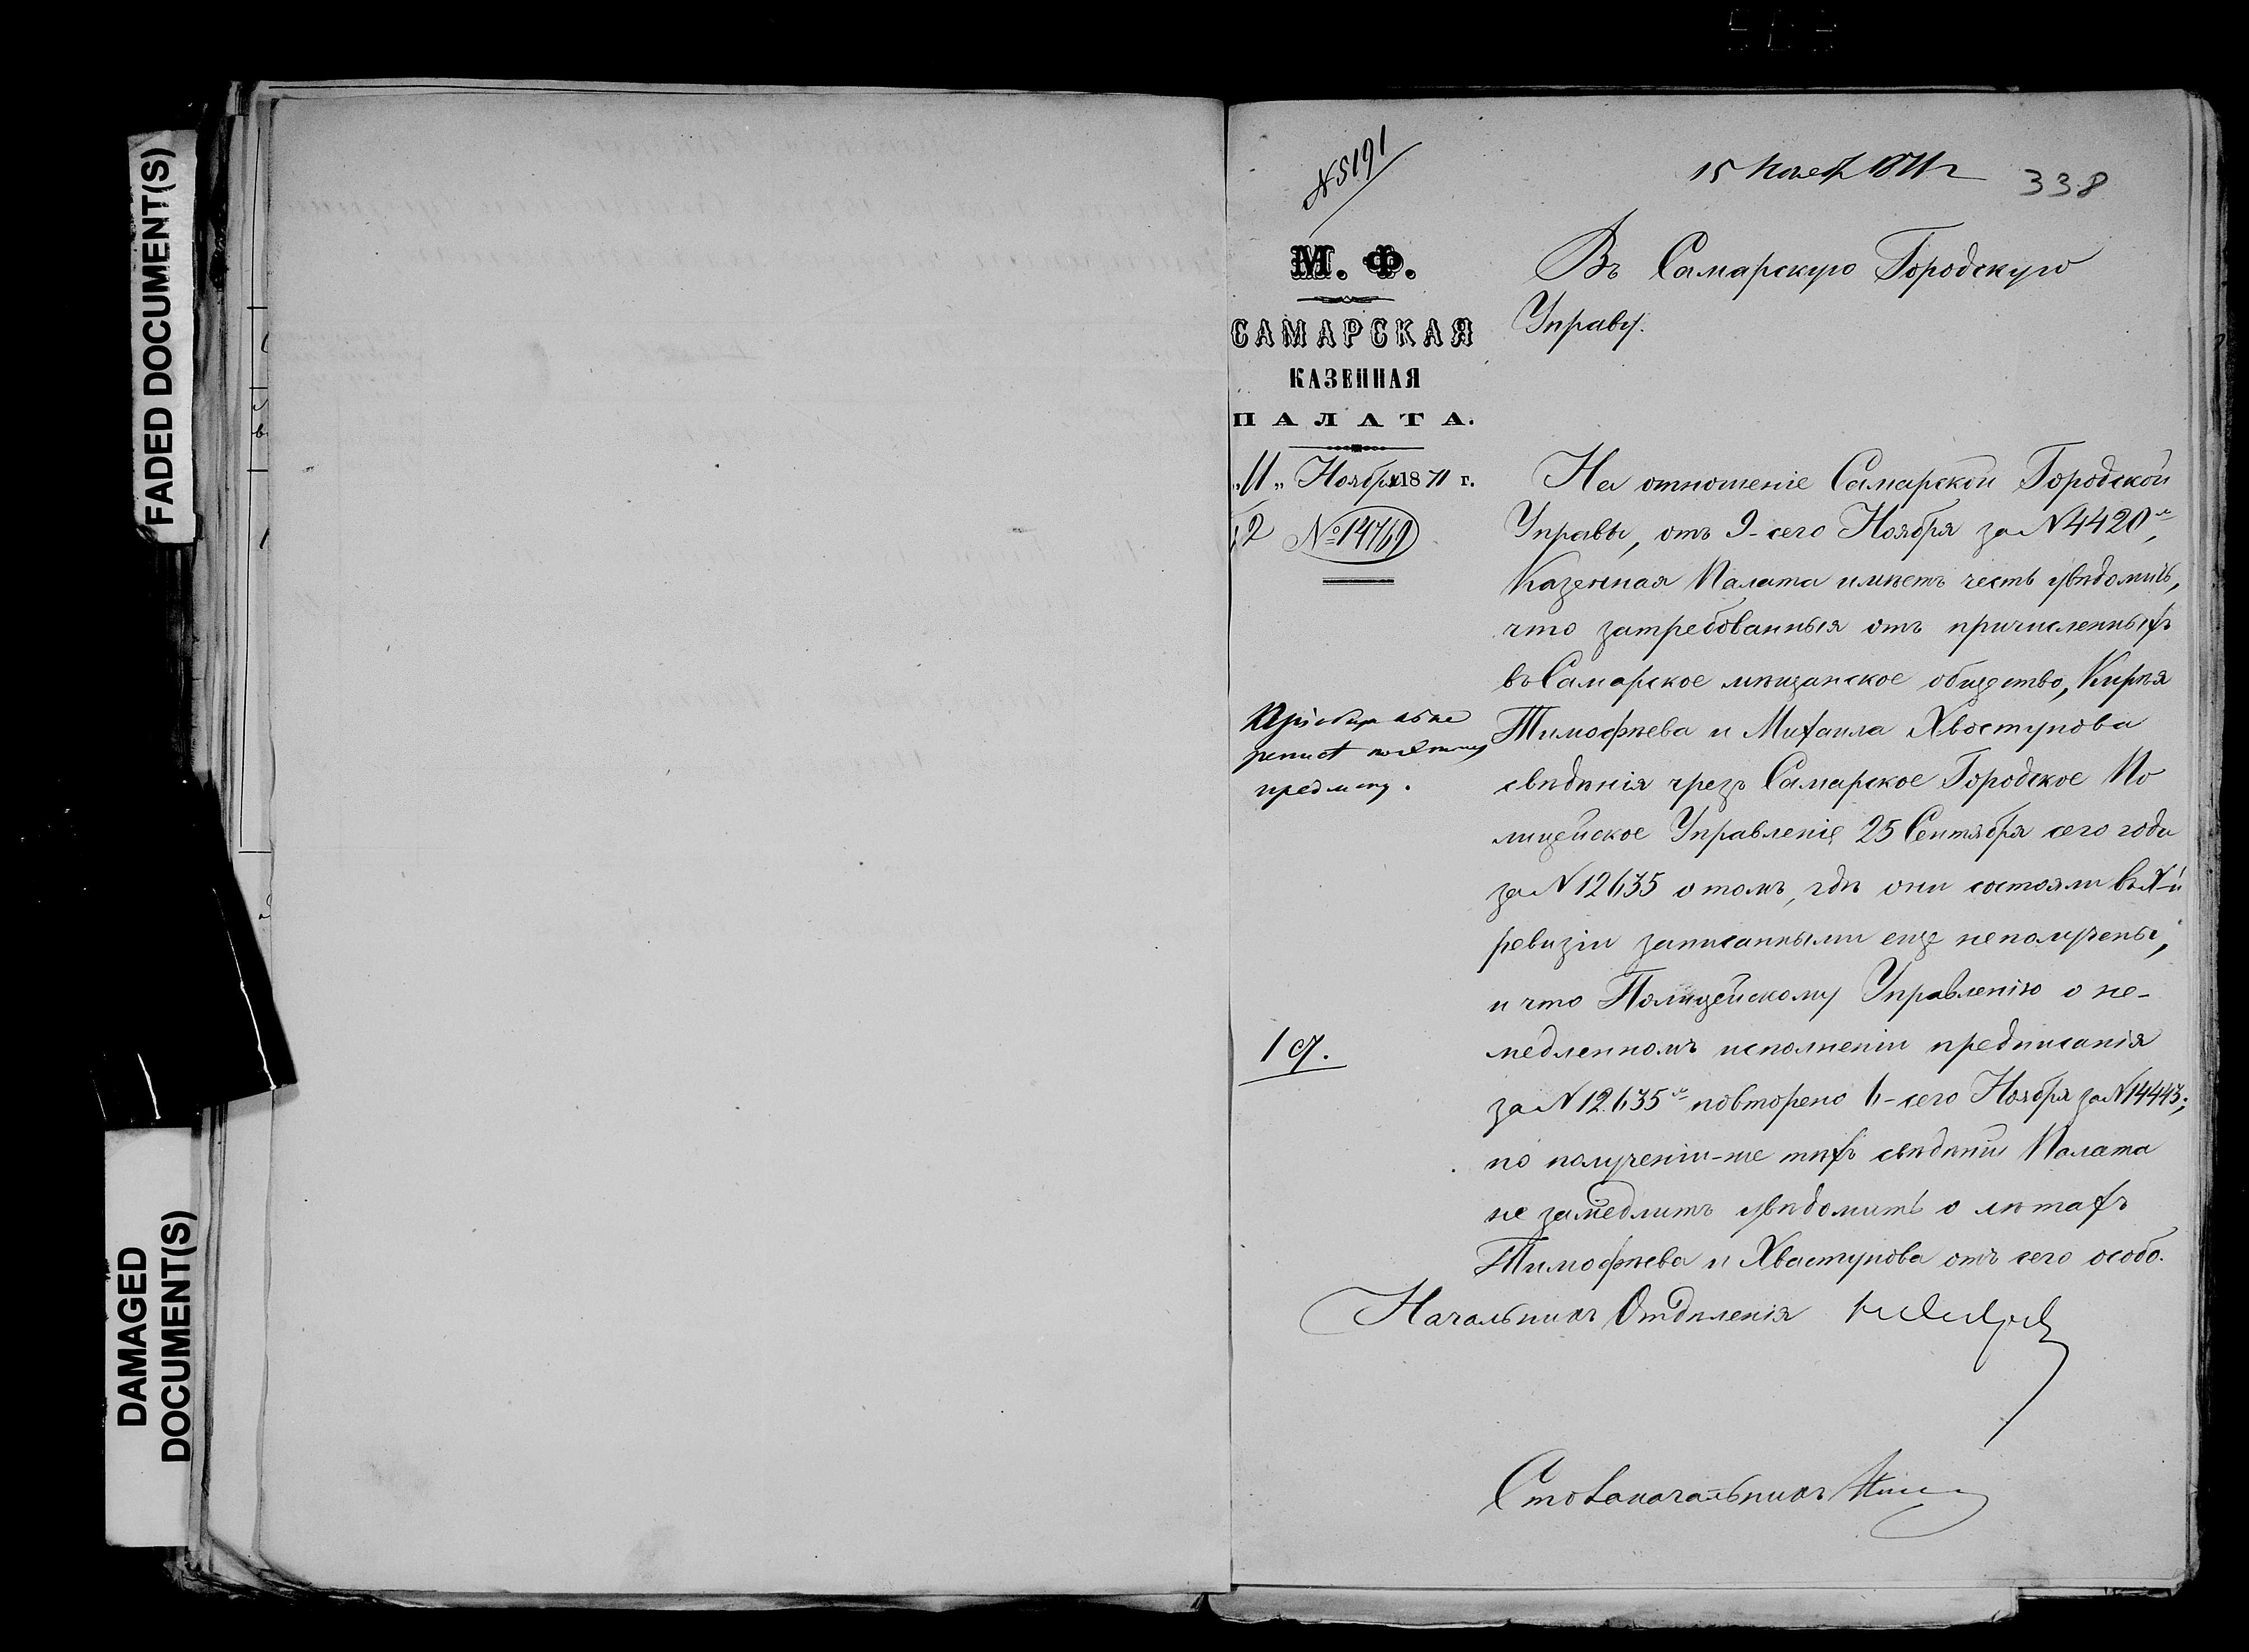 FADED DOCUMENT(S)
DAMAGED
DOCUMENT(S)
N 5191
338
М. Ф.
САМАРСКАЯ
КАЗЕННАЯ
ПАЛАТА.
„11„ Ноября 1871 г.
№ 14769
1 ст.
Въ Самарскую Городскую
Управу.
На отношеніе Самарской Городской
Управы, отъ 9-сего Ноября за N 4420м,
Казенная Палата имѣетъ честь увѣдомить,
что затребованныя отъ причисленныхъ
въ Самарское мѣщанское общество, Кирѣя
Тимофѣева и Михаила Хвостунова
свѣдѣнія чрезъ Самарское Городское По
лицейское Управленіе 25 Сентября сего года
за N 12635 о томъ, гдѣ они состояли въ X-й
ревизіи записанными еще неполучены,
и что Полицейскому Управленію о не-
медленномъ исполненіи предписанія
за N 12.635м повторено 6-сего Ноября за N 14443;
по полученіи-же тѣхъ свѣдѣній Палата
не замедлитъ увѣдомить о лѣтахъ
Тимофѣева и Хвастунова отъ сего особо.
Начальникъ Отдѣленія
Столоначальникъ